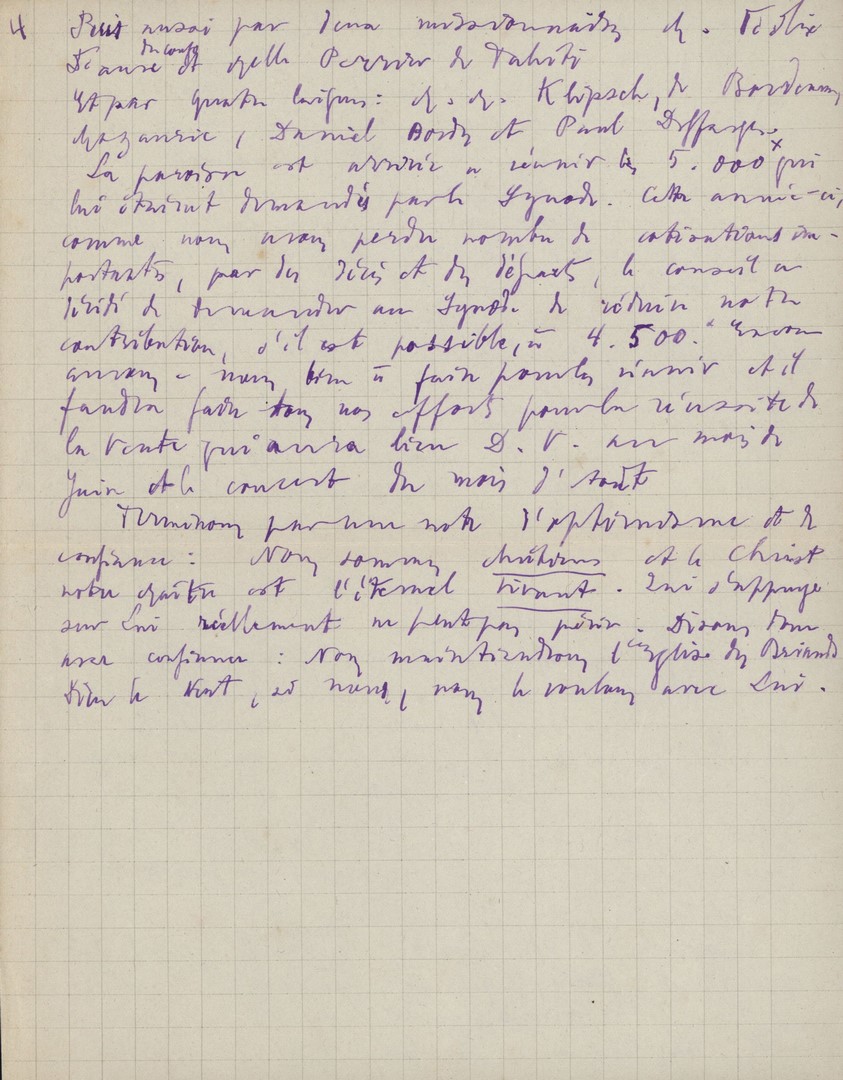 4 Puis aussi par deux missionnaires M. Félix
Faure du Congo et Melle Perrier de Tahiti
Et par quatre laïques : M. M. Klipsch, de Bordeaux,
Mazauric, Daniel Bordy et Paul Deffarges.
La paroisse est arrivée à réunir les 5.000 x qui
lui étaient demandés par le Synode. Cette année-ci,
comme nous avons perdu nombre de cotisations im-
portantes, par des décès et des départs, le conseil a
décidé de demander au Synode de réduire notre
contribution, s'il est possible, à 4.500. x Encore
aurons-nous bien à faire pour les réunir et il
faudra faire tous nos efforts pour la réussite de
la Vente qui aura lieu D.V. au mois de
Juin et le concert du mois d'Août
Terminons par une note d'optimisme et de
confiance : Nous sommes chrétiens et le Christ
notre Maître est l'éternel vivant. Qui s'appuye
sur Lui réellement ne peut pas périr. Disons donc
avec confiance : Nous maintiendrons l'Eglise des Briands
Dieu le veut, et nous, nous le voulons avec Lui.